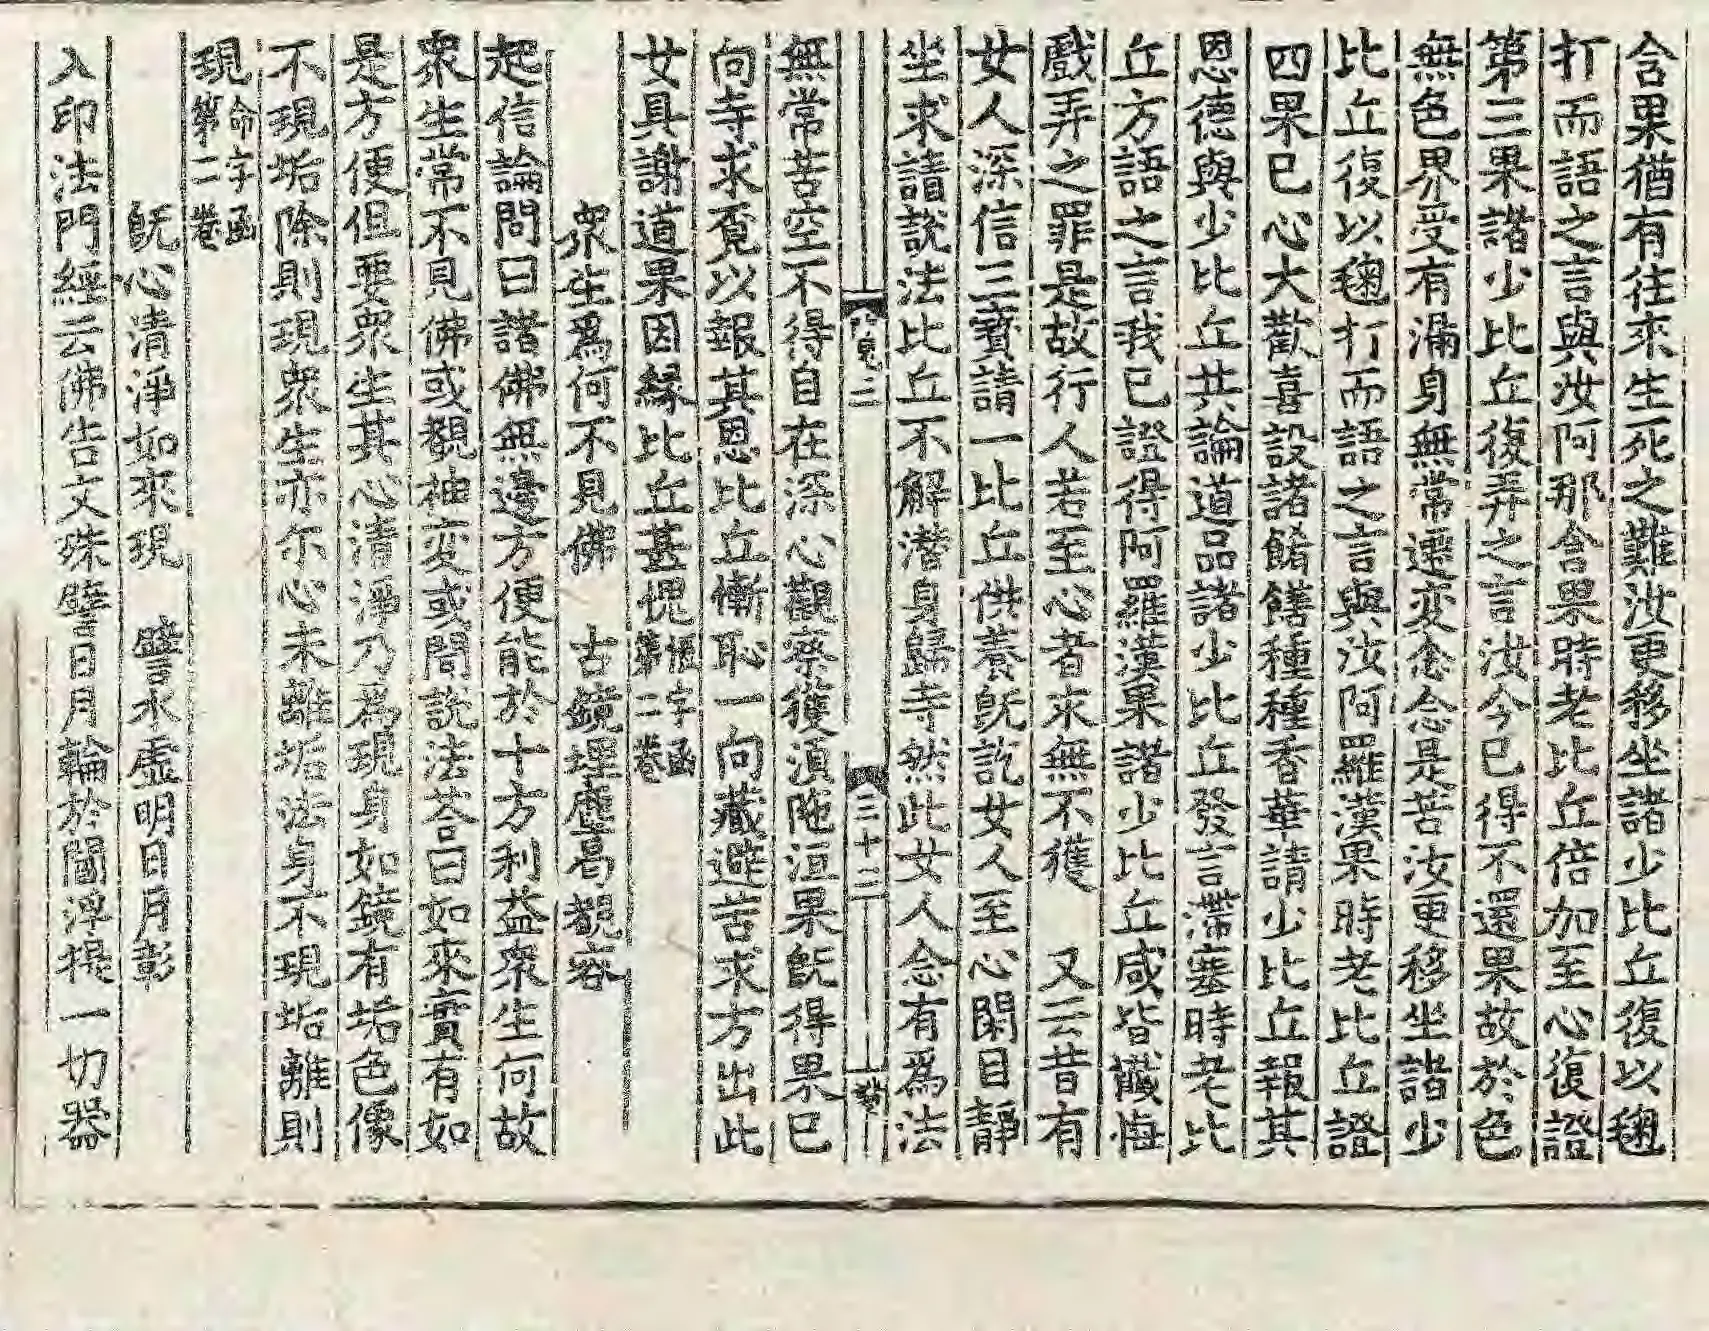 含果猶有往來生死之難汝更移坐諸少比丘復以毱
打而語之言與汝阿那含果時老比丘倍加至心復證
第三果諸少比丘復弄之言汝今已得不還果故於色
無色界受有漏身無常遷変念念是苦汝更移坐諸少
比丘復以毱打而語之言與汝阿羅漢果時老比丘證
四果已心大歡喜設諸餚饍種種香華請少比丘報其
恩德與少比丘共論道品諸少比丘發言滯塞時老比
丘方語之言我已證得阿羅漢果諸少比丘咸皆懺悔
戲弄之罪是故行人若至心者求無不獲　又云昔有
女人深信三寶請一比丘供養旣訖女人至心閑目靜
坐求請說法比丘不解潛身歸寺然此女人念有爲法
三十三
無常苦空不得自在深心觀察獲須陁洹果旣得果已
向寺求覓以報其恩比丘慚恥一向藏避苦求方出此
女具謝道果因緣比丘甚愧
衆生爲何不見佛　古鏡埋塵曷覩容
起信論問曰諸佛無邊方便能於十方利益衆生何故
衆生常不見佛或覩神変或聞說法荅曰如來實有如
是方便但要衆生其心清淨乃爲現身如鏡有垢色像
不現垢除則現衆生亦尒心未離垢法身不現垢離則
現命字函第二卷
旣心清淨如來現　譬水虛明日月彰
入印法門經云佛告文殊譬日月輪於閻浮提一切器